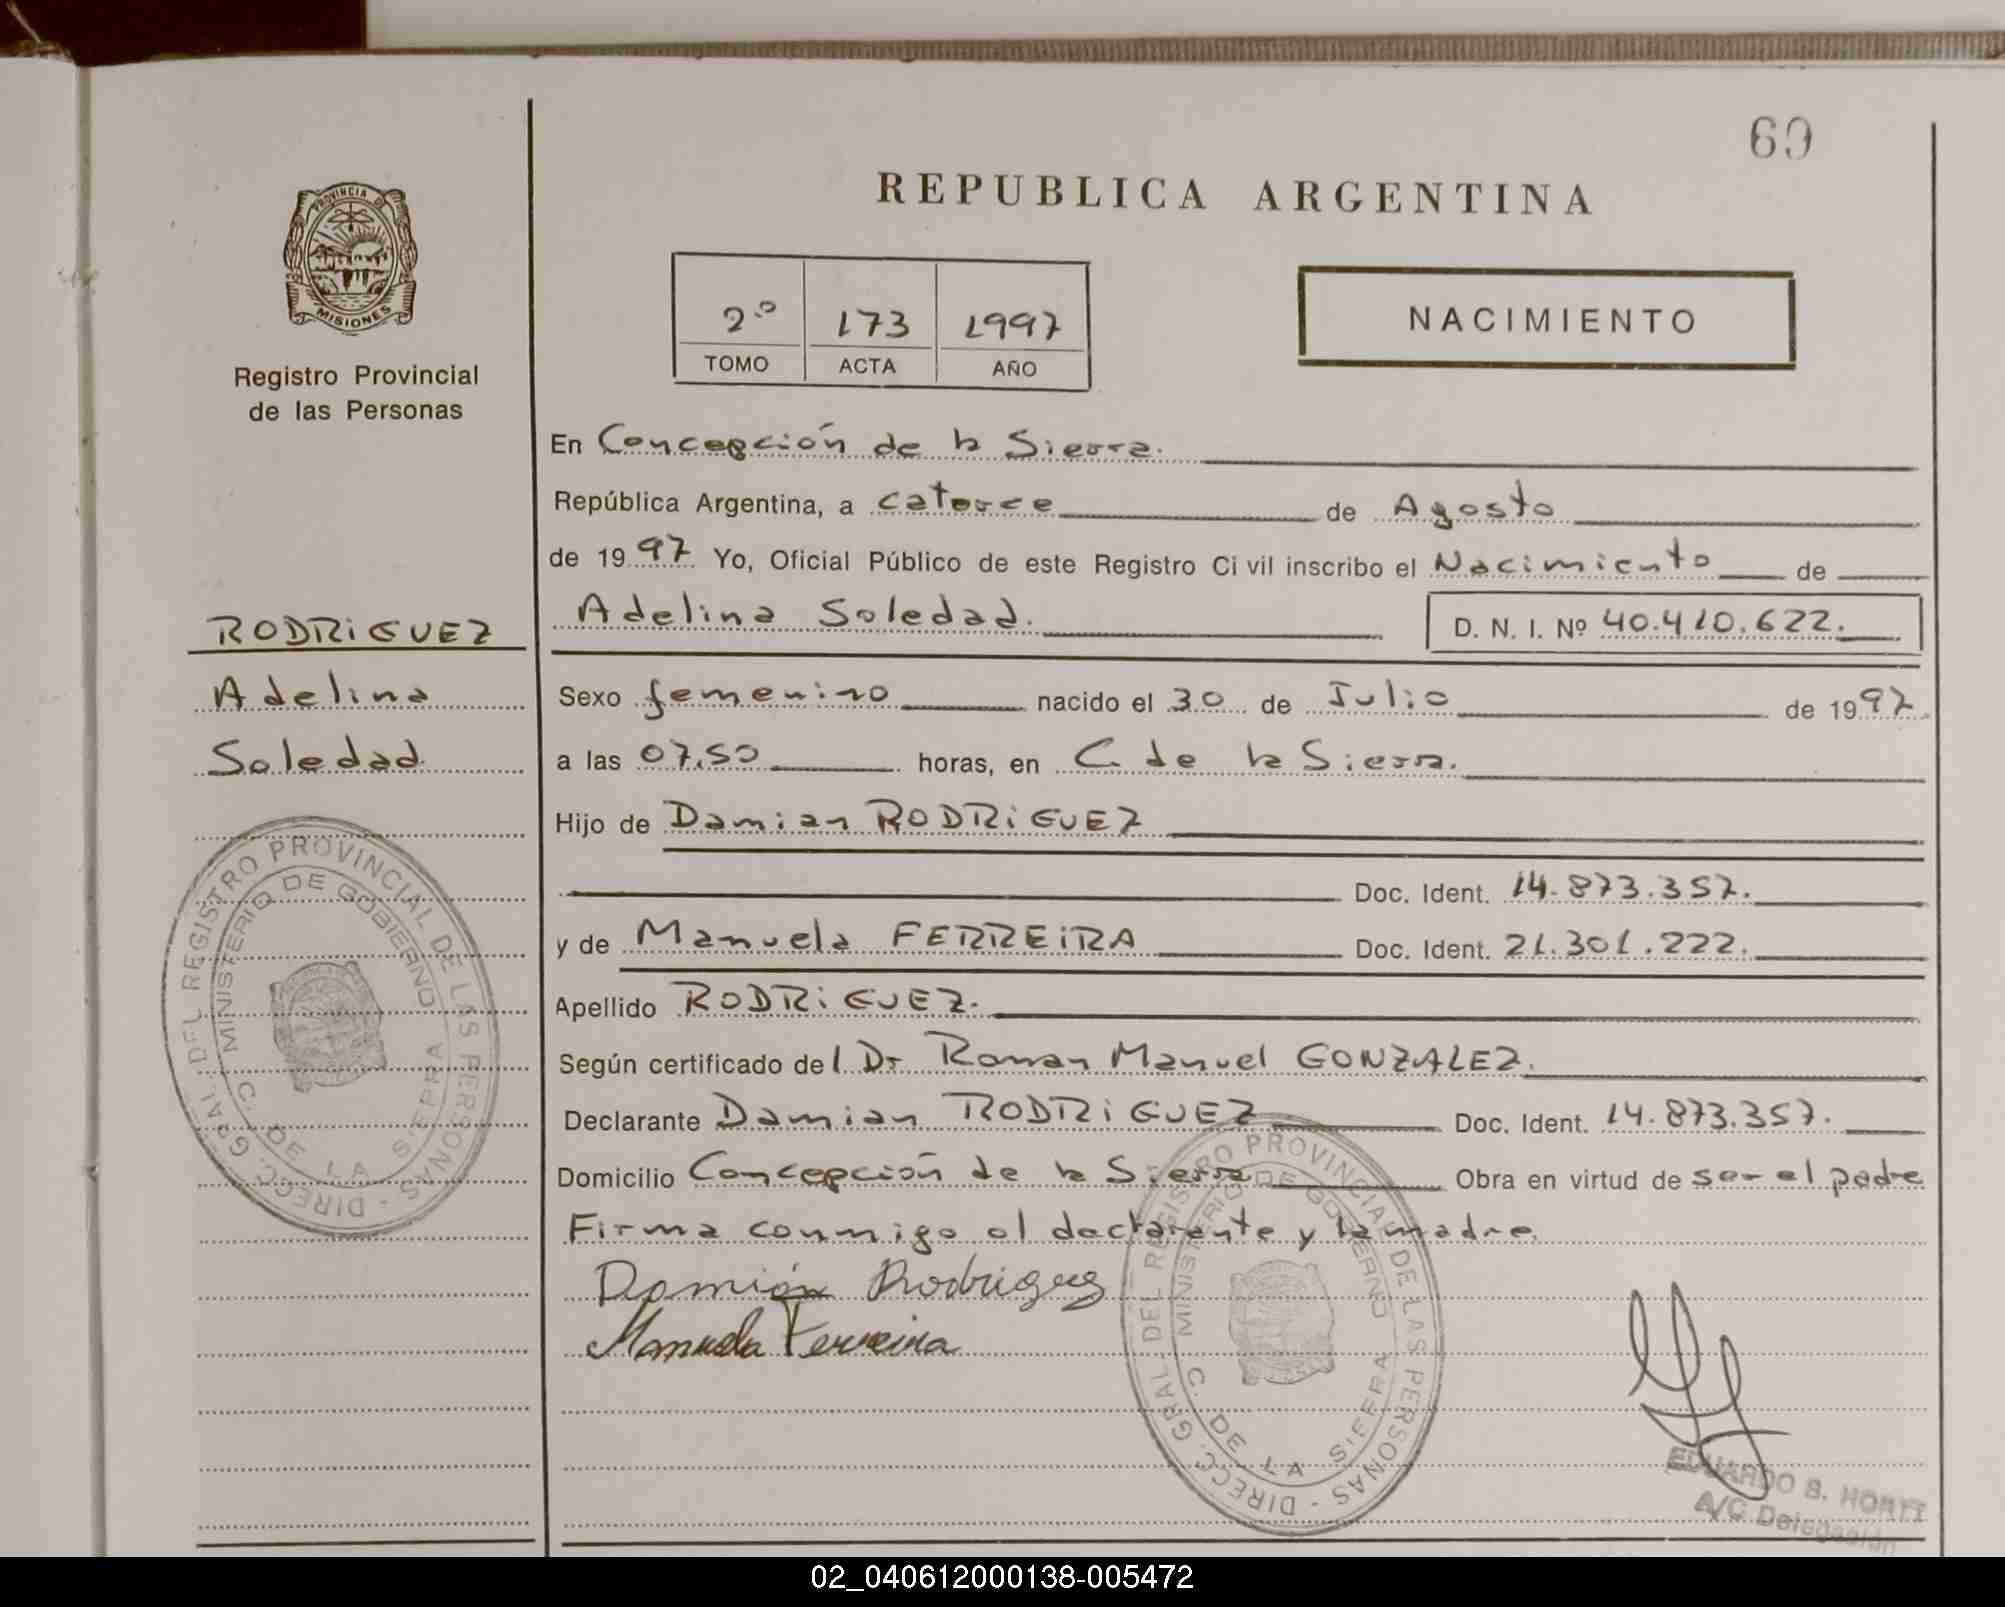 69
PROVINCIA DE
MISIONES
Registro Provincial
de las Personas
REPUBLICA ARGENTINA
2º 173 1997
TOMO ACTA AÑO
NACIMIENTO
En Concepción de la Sierra.
República Argentina, a catorce de Agosto
de 1997 Yo, Oficial Público de este Registro Civil inscribo el Nacimiento de
Adelina Soledad. D. N. I. Nº 40.410.622.
RODRIGUEZ
Adelina
Soledad
Sexo femenino nacido el 30 de Julio de 1997
a las 07,50 horas, en C. de la Sierra.
Hijo de Damian RODRIGUEZ
Doc. Ident. 14.873.357.
y de Manuela FERREIRA Doc. Ident. 21.301.222.
Apellido RODRIGUEZ.
Según certificado del Dr Roman Manuel GONZALEZ.
Declarante Damian RODRIGUEZ Doc. Ident. 14.873.357.
Domicilio Concepción de la Sierra Obra en virtud de ser el padre
Firma conmigo el declarante y la madre.
Damián Rodriguez
Manuela Ferreira
DIRECC. GRAL. DEL REGISTRO PROVINCIAL DE LAS PERSONAS -
MINISTERIO DE GOBIERNO
C. DE LA SIERRA
DIRECC. GRAL. DEL REGISTRO PROVINCIAL DE LAS PERSONAS -
MINISTERIO DE GOBIERNO
C. DE LA SIERRA
EDUARDO B.
A/C Delegación
02_040612000138-005472